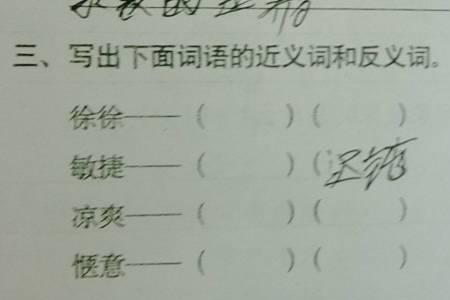 三、写出下面词语的近义词和反义词。
徐徐——（ ）（ ）
敏捷——（ ）（ ）
凉爽——（ ）（ ）
惬意——（ ）（ ）